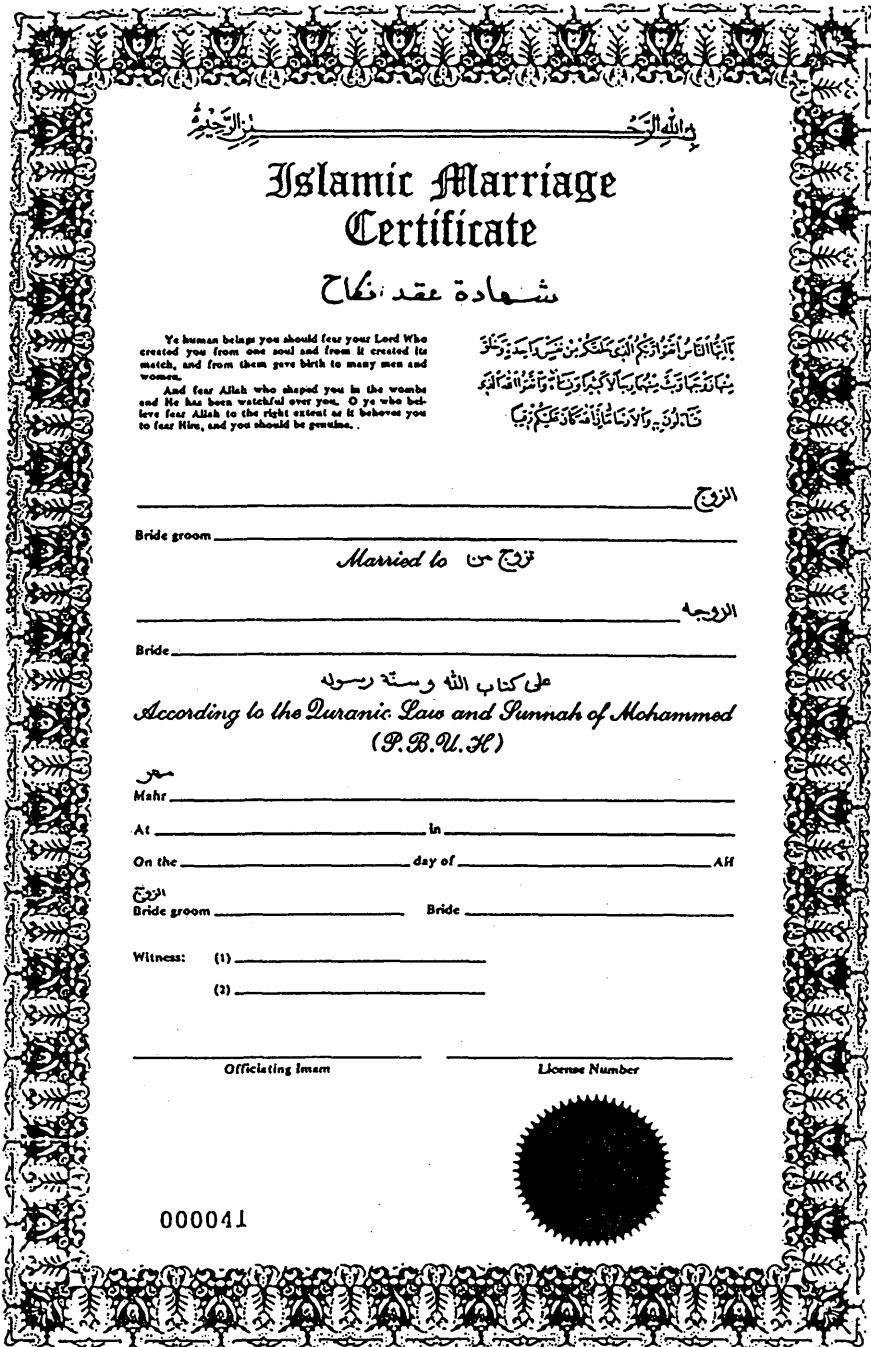 بسم الله الرحمن الرحيم
Islamic Marriage
Certificate
شهادة عقد نكاح
Ye human beings you should fear your Lord Who
created you from one soul and from it created its
match, and from them gave birth to many men and
women.
And fear Allah who shaped you in the wombs
and He has been watchful over you. O ye who bel-
ieve fear Allah to the right extent as it behoves you
to fear Him, and you should be genuine. .
يَا أَيُّهَا النَّاسُ اتَّقُوا رَبَّكُمُ الَّذِي خَلَقَكُمْ مِنْ نَفْسٍ وَاحِدَةٍ وَخَلَقَ
مِنْهَا زَوْجَهَا وَبَثَّ مِنْهُمَا رِجَالًا كَثِيرًا وَنِسَاءً وَاتَّقُوا اللَّهَ الَّذِي
تَسَاءَلُونَ بِهِ وَالْأَرْحَامَ إِنَّ اللَّهَ كَانَ عَلَيْكُمْ رَقِيبًا
الزوج
Bride groom
Married to تزوج من
الزوجه
Bride
على كتاب الله و سنّة رسوله
According to the Quranic Law and Sunnah of Mohammed
(P.B.U.H)
مهر
Mahr
At in
On the day of AH
الزوج
Bride groom Bride
Witness: (1)
(2)
Officiating Imam License Number
000041